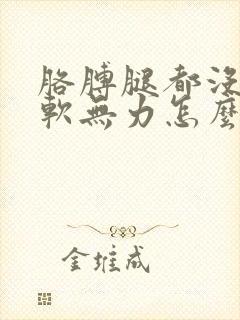 胳膊腿都没
軟無力怎麼
金堆成